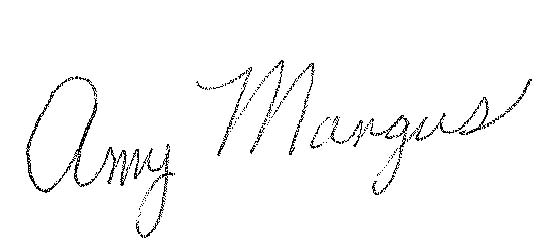 Amy Mangus